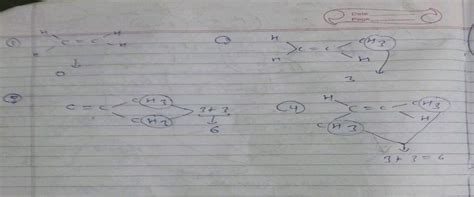 ①
H H
C = C
H H
0
②
H CH3
C = C
H H
3
③
C = C CH3
CH3
3 + 3
6
④
H CH3
C = C
CH3 H
3 + 3 = 6